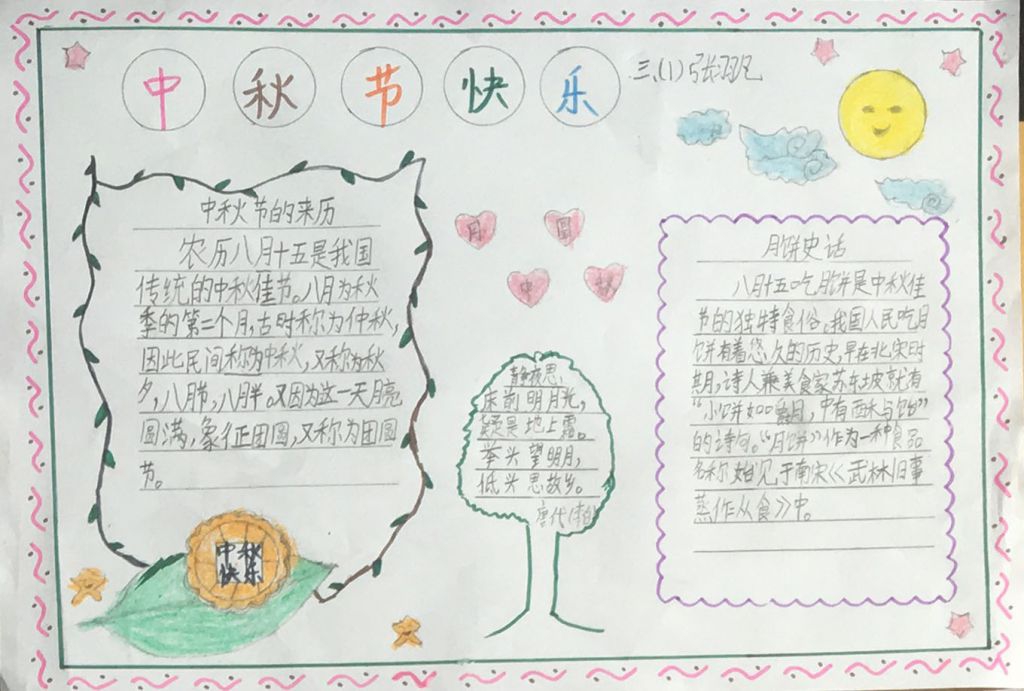 中秋节快乐
三、(1) 张
中秋节的来历
农历八月十五是我国
传统的中秋佳节。八月为秋
季的第二个月,古时称为仲秋,
因此民间称为中秋,又称为秋
夕,八月节,八月半。又因为这一天月亮
圆满,象征团圆,又称为团圆
节。
中秋
快乐
月 圆
中 秋
静夜思
床前明月光,
疑是地上霜。
举头望明月,
低头思故乡。
唐代(李白)
月饼史话
八月十五吃月饼是中秋佳
节的独特食俗。我国人民吃月
饼有着悠久的历史,早在北宋时
期,诗人兼美食家苏东坡就有
“小饼如嚼月,中有酥与饴”
的诗句。“月饼”作为一种食品
名称始见于南宋《武林旧事
蒸作从食》中。